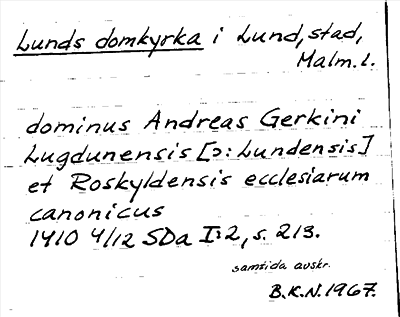 Lunds domkyrka i Lund, stad,
Malm. l.
dominus Andreas Gerkini
Lugdunensis [ɔ: Lundensis]
et Roskyldensis ecclesiarum
canonicus
1410 4/12 SDa I:2, s. 213.
samtida avskr.
B.K.N. 1967.